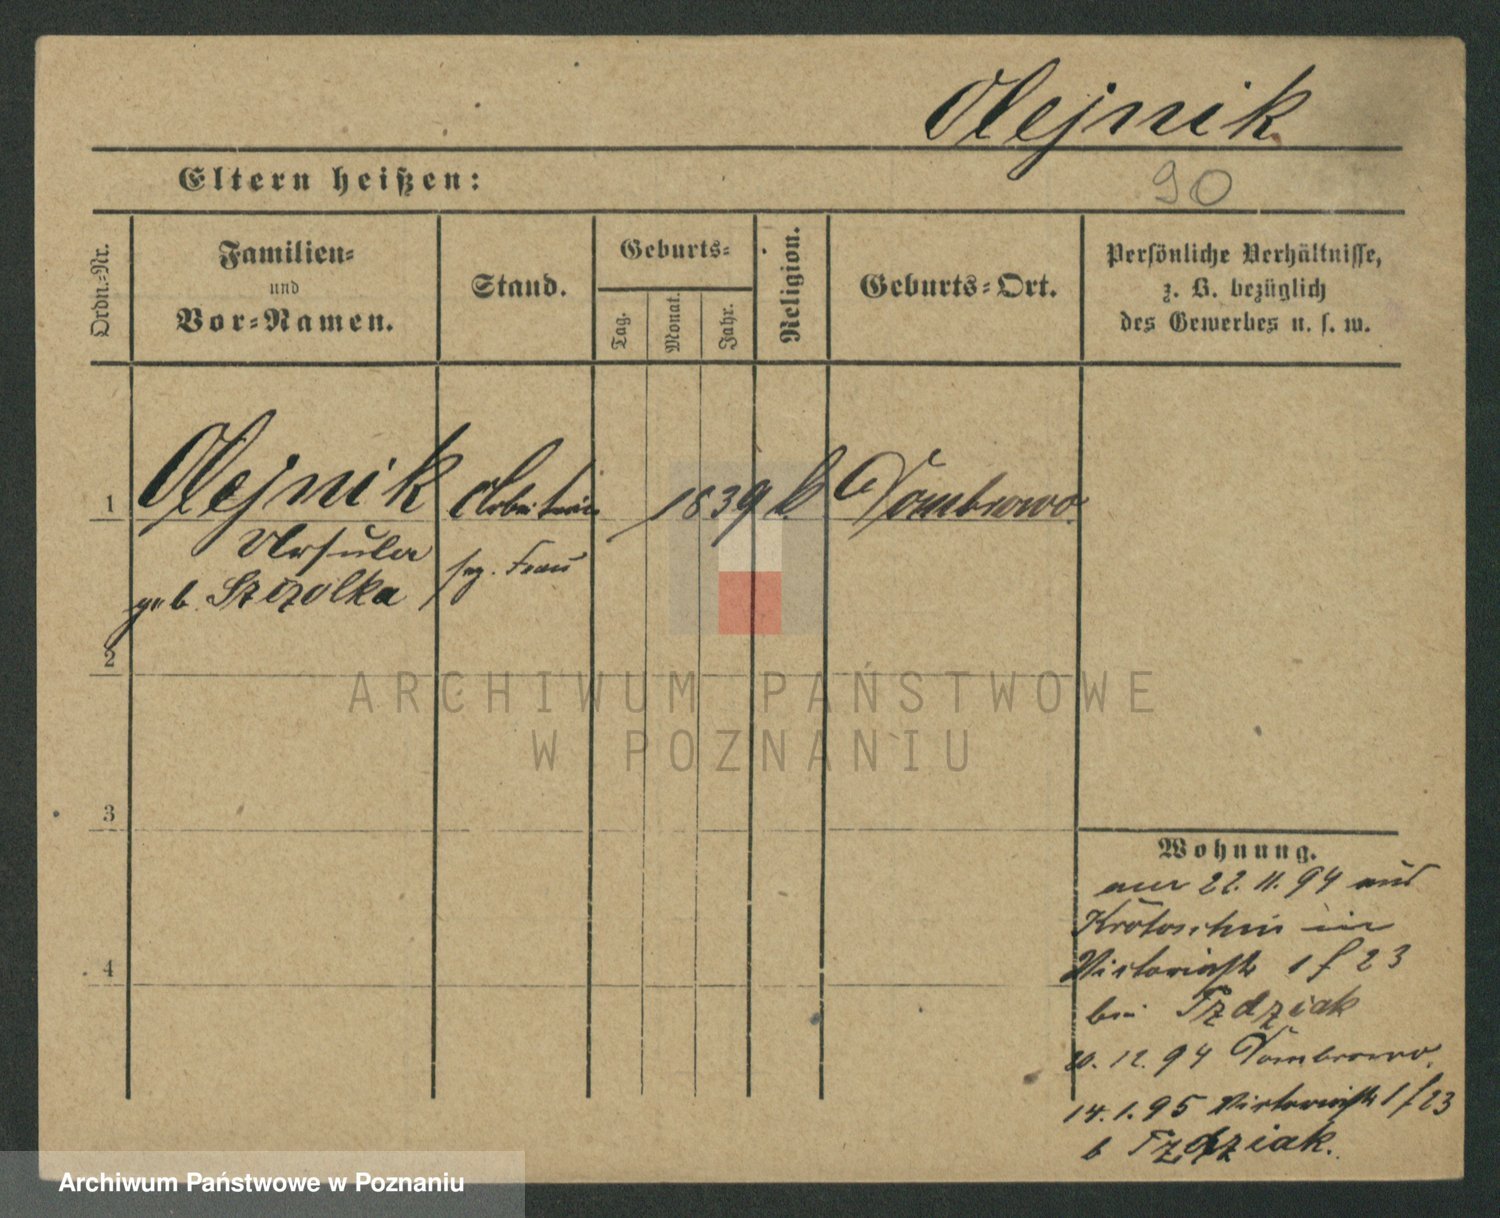 Olejnik
Eltern heißen:
90
Ordn.-Nr.
Familien-
und
Vor-Namen.
Stand.
Geburts-
Tag.
Monat.
Jahr.
Religion.
Geburts-Ort.
Persönliche Verhältnisse,
z. B. bezüglich
des Gewerbes u. s. w.
1 Olejnik Arbeiterin 1839 k. Dombrowo.
Ursula
geb. Szczolka
Frau
2
ARCHIWUM PAŃSTWOWE
W POZNANIU
3
4
Wohnung.
22. 11. 94 aus
Krotoschin in
Victoriastr 1 f 23
bei Tzdziak
20. 12. 94 Dombrowo.
14. 1. 95 Victoriastr 1 f 23
b Tzdziak.
Archiwum Państwowe w Poznaniu